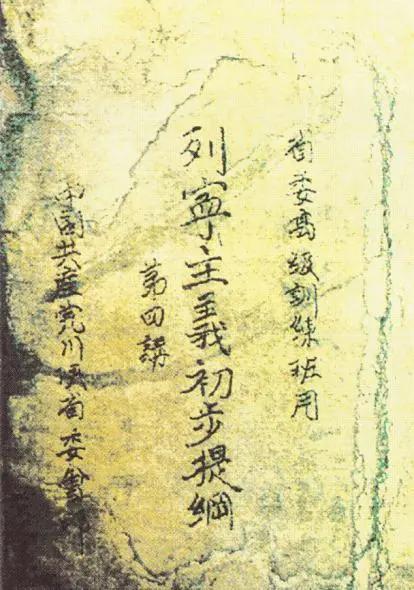 省委高級訓練班用
列寧主義初步提綱
第四講
中國共産党川陝省委會